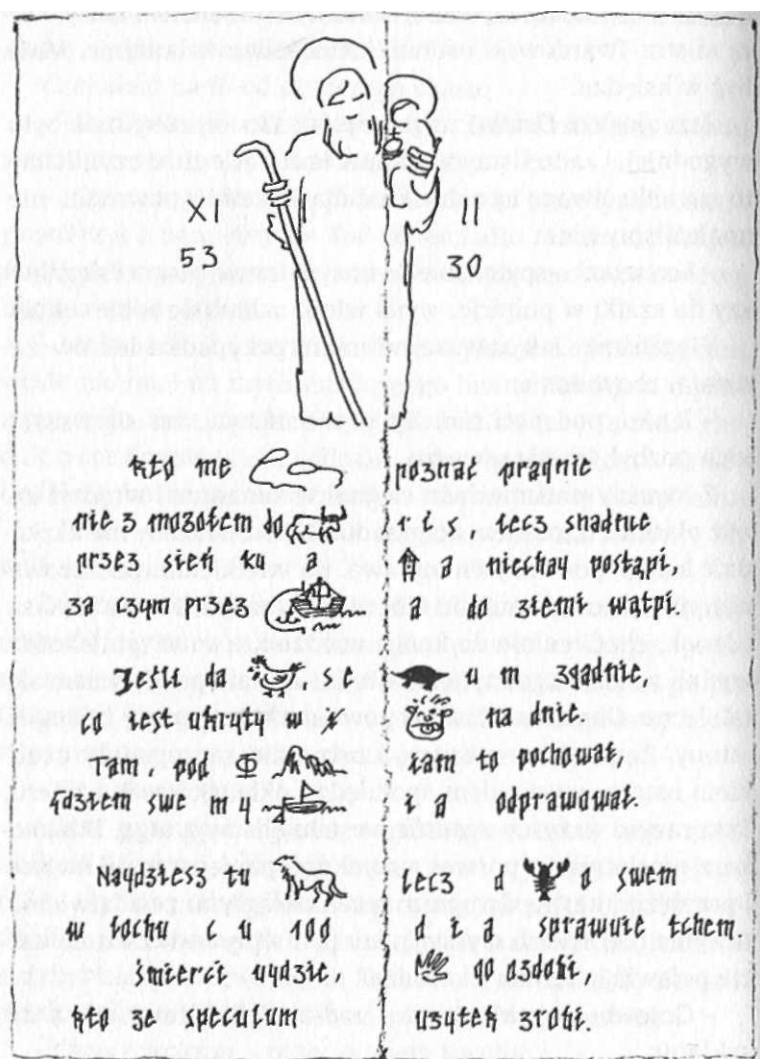 XI 11
53 30
kto me poznać pragnie
nie z mozołem do r. t. s, lecz snadnie,
przez sień ku a a niechay postąpi,
za czym przez a do ziemi wątpi.
Jeśli da, s e u m zgadnie,
co iest ukryty w na dnie,
Tam, pod to pochował,
swe m y 4 ł a odprawował.
Naydziesz tu lecz a a swem
w lochu r u 100 ł a sprawuie tchem.
Śmierci uydzie, go ozdobi,
kto ze speculum użytek zrobi.